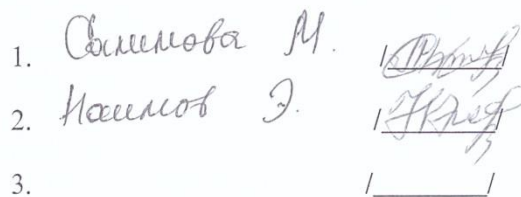 1. Салимова М. /________/
2. Наимов Э. /________/
3. /________/